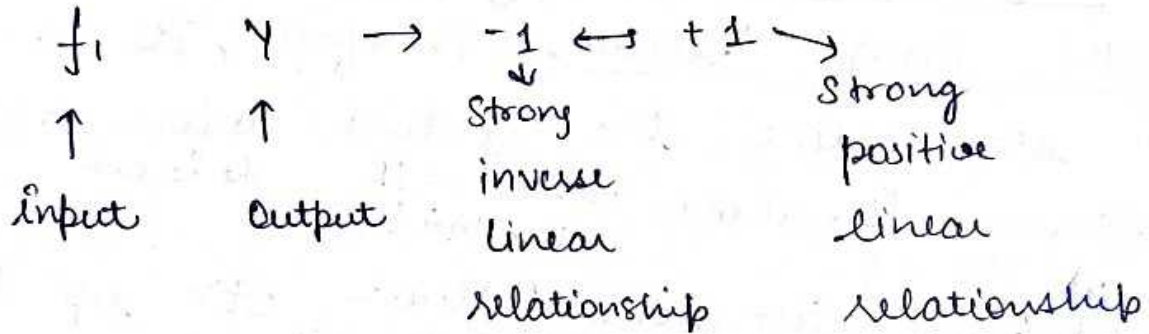 f1 Y → -1 ↔ +1
↓
↑ ↑
input output
Strong
inverse
linear
relationship
Strong
positive
linear
relationship